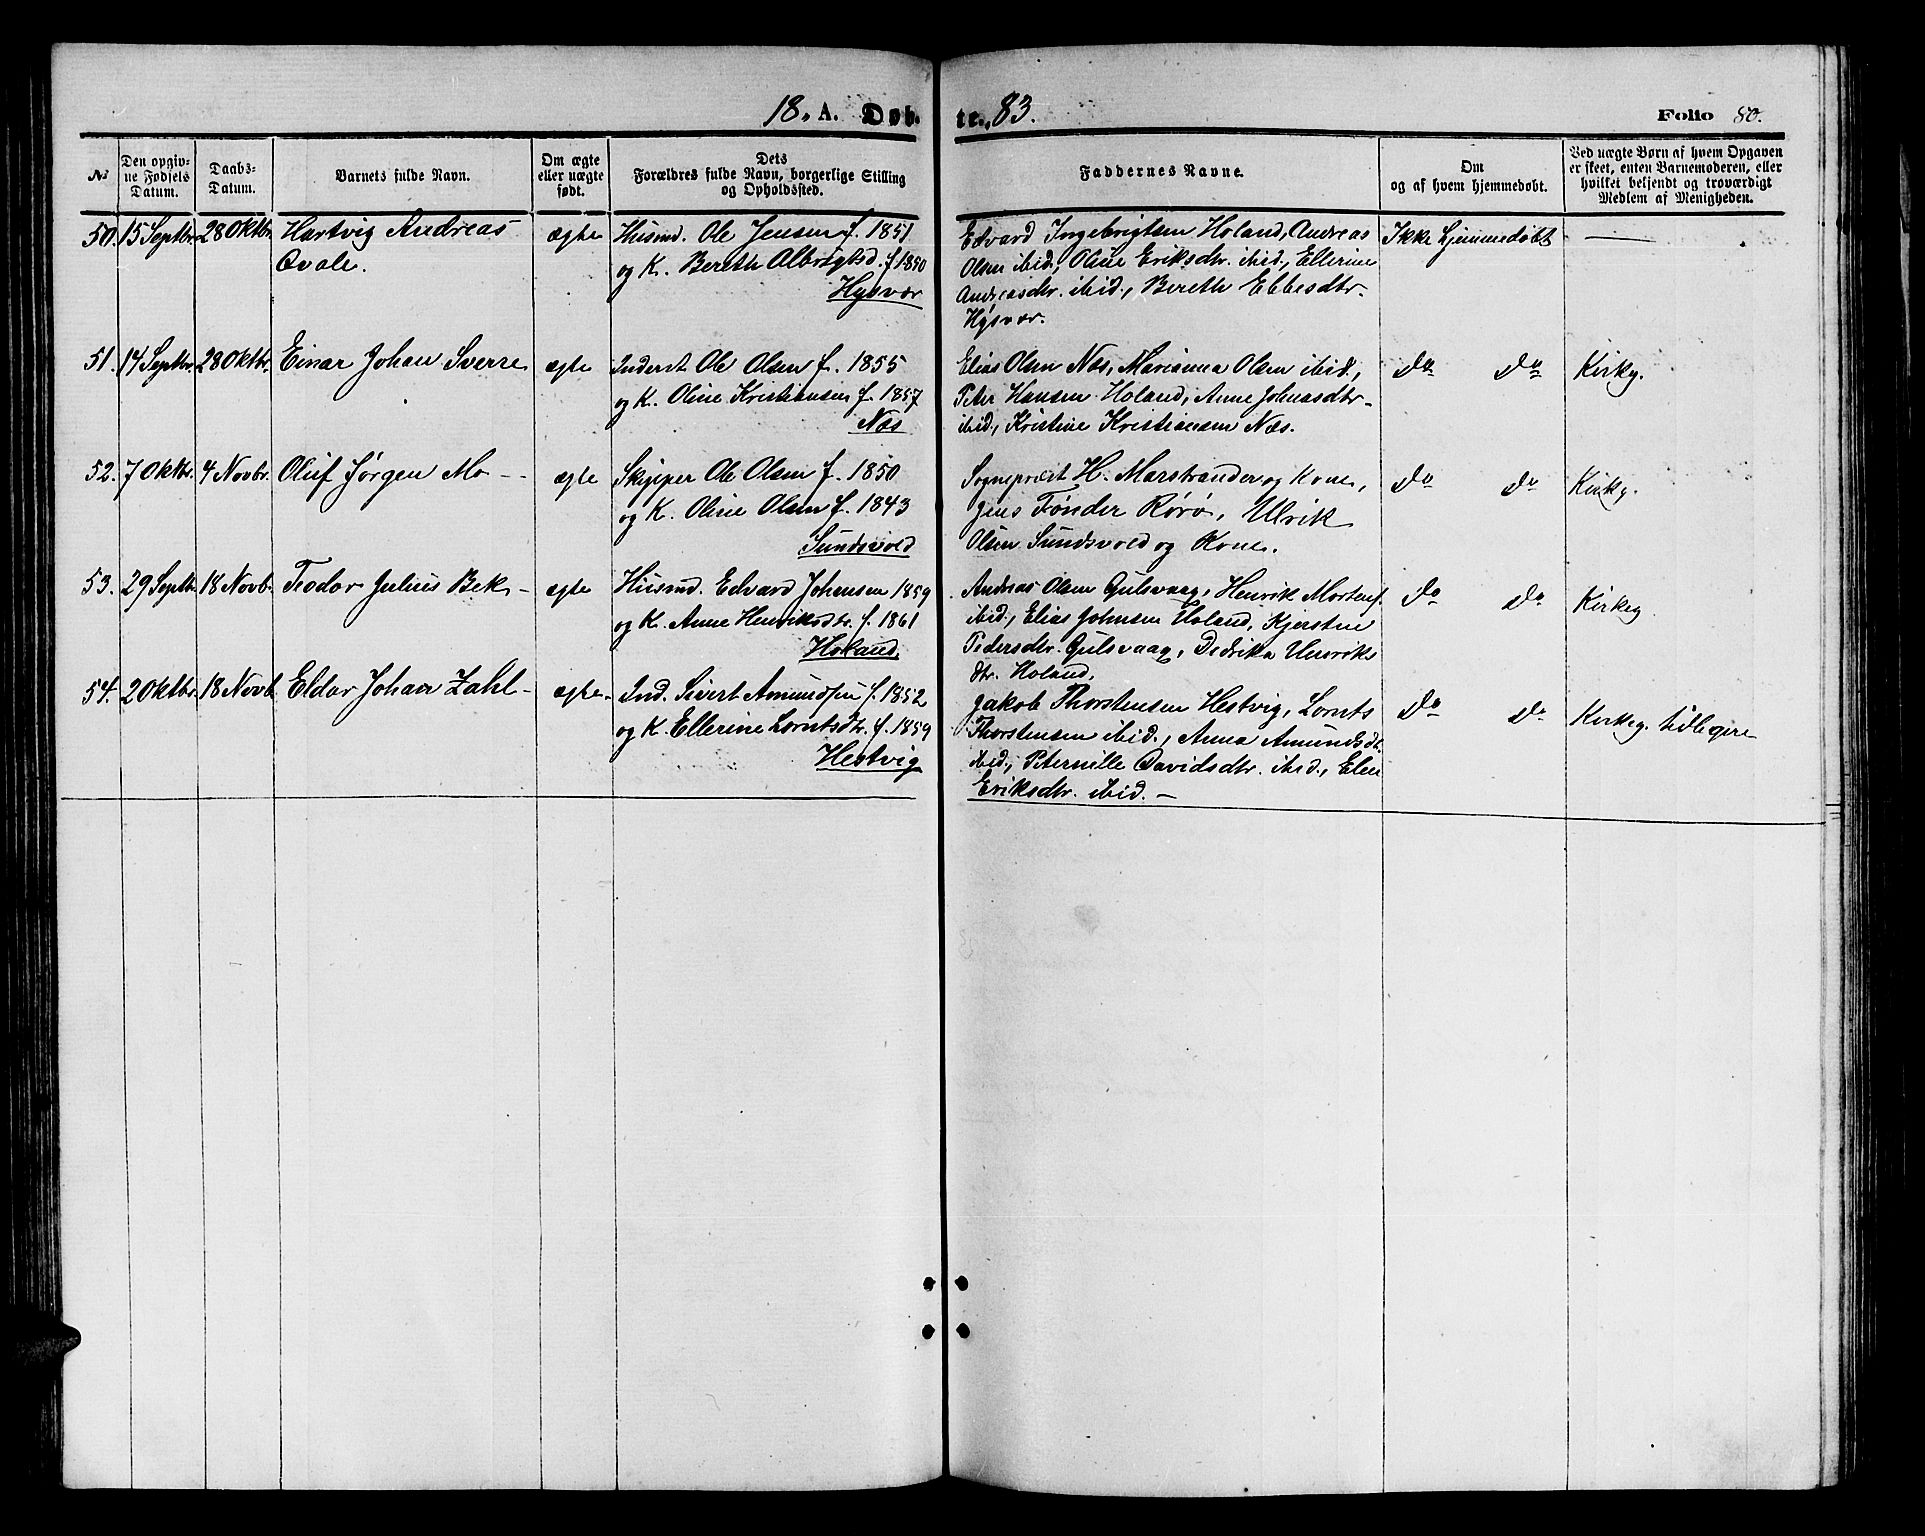 18. A. Døb- te. 83. Folio 80.
No
Den opgiv-
ne Fødsels
Datum.
Daabs-
Datum.
Barnets fulde Navn.
Om ægte
eller uægte
født.
Dets
Forældres fulde Navn, borgerlige Stilling
og Opholdssted.
Faddernes Navne.
Om
og af hvem hjemmedøbt.
Ved uægte Børn af hvem Opgaven
er skeet, enten Barnemoderen, eller
hvilket bekjendt og troværdigt
Medlem af Menigheden.
50. 15 Septbr. 28 Oktbr. Hartvig Andreas ægte Husmd. Ole Jensen f. 1851
Ovale. og K. Bereth Albrigtsd. f 1850
Hysvær
Edvard Ingebrigtsen Holand, Andreas Ikke hjemmedøbt —
Olsen ibid., Oline Eriksdtr. ibid., Ellerine
Andreasdtr. ibid., Bereth Ebbesdtr.
Hysvær.
51. 14 Septbr. 28 Oktbr. Einar Johan Sverre ægte Inderst Ole Olsen f. 1855
og K. Oline Kristiansen f. 1857
Næs
Elias Olsen Næs, Marianna Olsen ibid., do do Kirkg.
Peter Hansen Holand, Anne Johnasdtr.
ibid., Kristine Kristiansen Næs.
52. 7 Oktbr. 4 Novbr. Oluf Jørgen Mo - - ægte Skipper Ole Olsen f. 1850
og K. Oline Olsen f. 1843
Sundsvold
Sognepræst H. Marstrander og Kone, do do Kirkg.
Jens Tønder Rørø, Ulrik
Olsen Sundsvold og Kone.
53. 29 Septbr. 18 Novb. Teodor Julius Bek - ægte Husmd. Edvard Johensen 1859
og K. Anne Henriksdtr. f. 1861
Holand.
Andreas Olsen Gulsvaag, Henrik Mortens. do do Kirkeg.
ibid., Elias Johnsen Holand, Kjerstine
Pedersdtr. Gulsvaag, Dedrika Henriks
dtr. Holand.
54. 2 Oktbr. 18 Novb. Eldor Johan Zahl - ægte. Ind. Sivert Amundsen f. 1852
og K. Ellerine Lorntsdtr. f. 1859
Hestvig
Jakob Thorstensen Hestvig, Lornts do do Kirkeg. tidligere
Thorstensen ibid., Anna Amundsdtr.
ibid., Peternille Davidsdtr. ibid., Elen
Eriksdtr. ibid. —